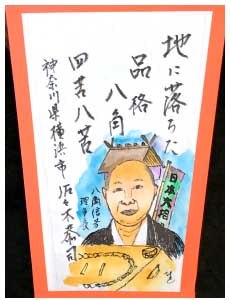 地に落ちた
品格
八角
四苦八苦
神奈川県横浜市
佐々木恭司
八角信芳
理事長
日本大相